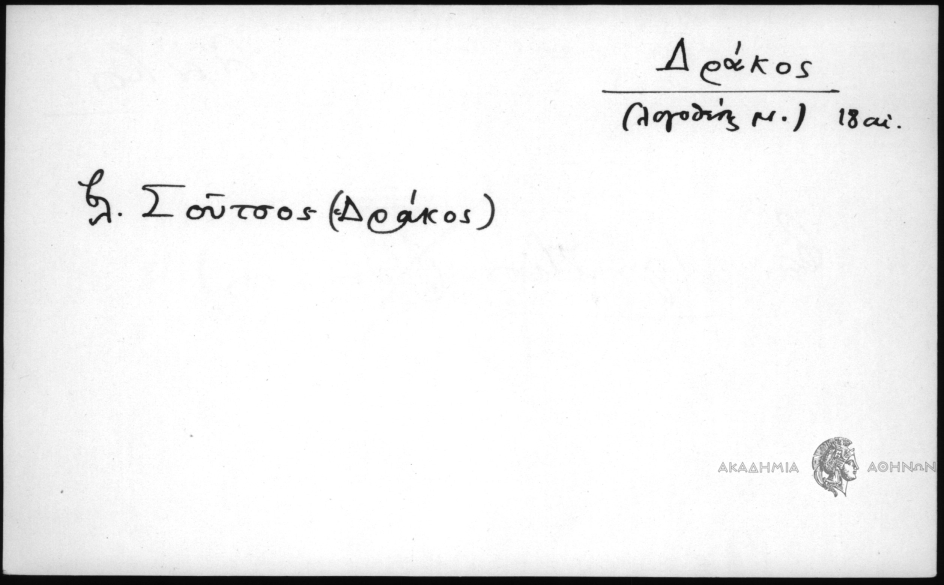 Δράκος
(λογοθέτης μ.) 18 αἰ.
βλ. Σοῦτσος (Δράκος)
ΑΚΑΔΗΜΙΑ ΑΘΗΝΩΝ